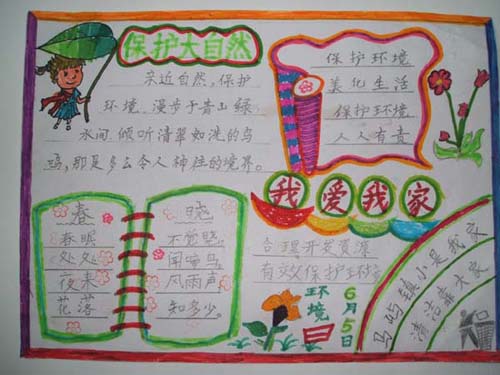 保护大自然
亲近自然,保护
环境、漫步于青山绿
水间,倾听清翠如洗的鸟
鸣,那是多么令人神往的境界。
保护环境
美化生活
保护环境
人人有责
我爱我家
合理开发资源
有效保护环境
春 晓
春眠 不觉晓。
处处 闻啼鸟
夜来 风雨声
花落 知多少。
6月5日
环境日
马屿镇小是我家
清洁靠大家